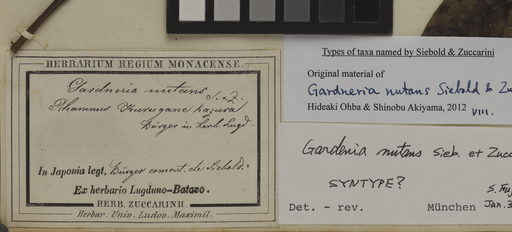 HERBARIUM REGIUM MONACENSE.
Gardneria nutans S. et Z.
Rhamnus
Bürger in herb. Lugd.
In Japonia legt. Bürger coment. de Siebold.
Ex herbario Lugduno-Batavo.
HERB. ZUCCARINII.
Herbar. Univ. Ludov. Maximil.
Types of taxa named by Siebold & Zuccarini
Original material of
Gardneria nutans Siebold & Zu
Hideaki Ohba & Shinobu Akiyama, 2012 VIII.
Gardenia nutans Sieb. et Zucc
SYNTYPE?
Det. - rev. München Jan. 3